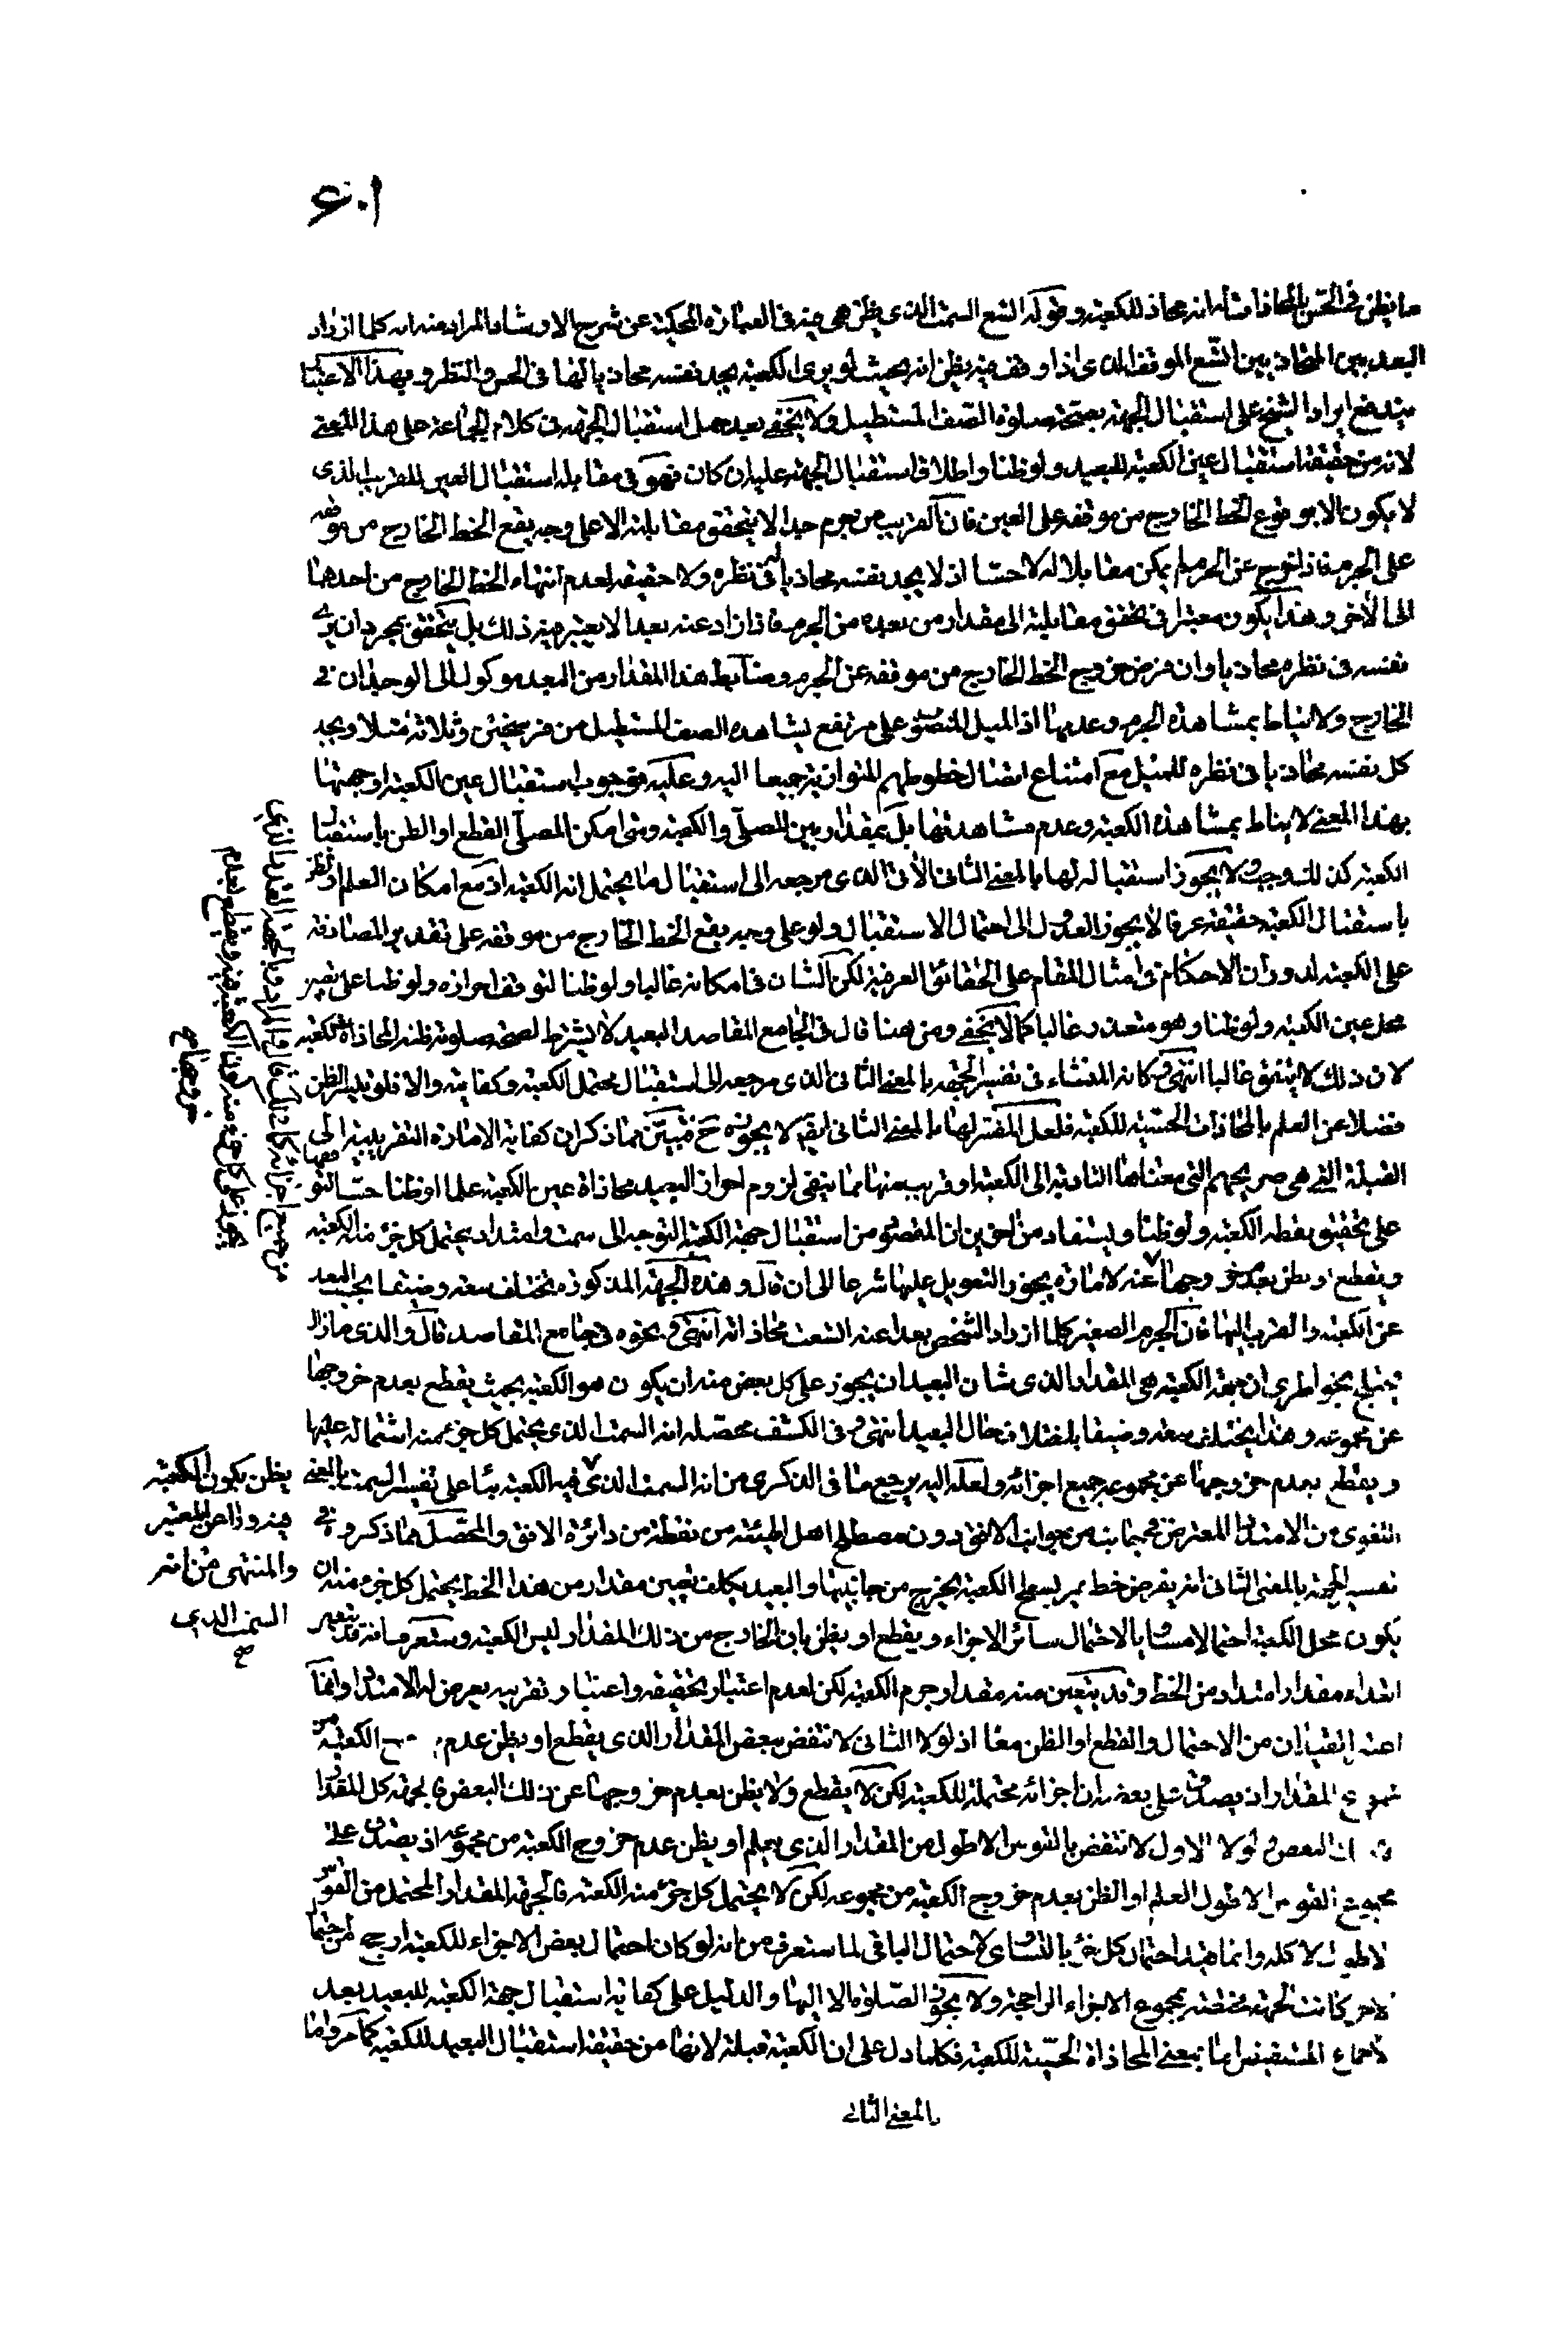 ما يظن في الحس بالمحاذات انه محاذ للكعبة وقوله اتسع السمت الذي يظن هي فيه في العبارة المحكية عن شرح الارشاد المراد منه انه كلما ازداد
البعد بين المحاذيين اتسع الموقف الذي اذا وقف فيه يظن انه بحيث لو يرى الكعبة يجد نفسه محاذيا لها في الحس والنظر وبهذا الاعتبار
يندفع ايراد الشيخ على استقبال الجهة بصحة صلوة الصف المستطيل ولا يخفى بعد حمل استقبال الجهة في كلام الجماعة على هذا المعنى
لانه من حقيقة استقبال عين الكعبة للبعيد ولو ظنا واطلاق استقبال الجهة عليه ان كان فهو في مقابلة استقبال العين للقريب الذي
لا يكون الا بوقوع الخط الخارج من موقفه على العين فان القريب من جرم جدا لا يتحقق مقابلته الا على وجه يقع الخط الخارج من موقفه
على الجرم فاذا خرج عن الجرم لم يكن مقابلا له لا حسا اذ لا يجد نفسه محاذيا له في نظره ولا حقيقة لعدم انتهاء الخط الخارج من احدهما
الى الاخر وهذا يكون معتبرا في تحقق مقابلته الى مقدار من بعده من الجرم فاذا زاد عنه بعدا لا يعتبر فيه ذلك بل يتحقق بمجرد ان يرى
نفسه في نظره محاذيا وان فرض خروج الخط الخارج من موقفه عن الجرم وضابط هذا المقدار من البعد موكول الى الوجدان في
الخارج ولا يناط بمشاهدة الجرم وعدمها اذ الميل المنصوب على مرتفع يشاهده الصف المستطيل من فرسخين وثلاثة مثلا ويجد
كل نفسه محاذيا في نظره للميل مع امتناع اتصال خطوطهم المتوازية جميعا اليه وعليه فوجوب استقبال عين الكعبة او جهتها
بهذا المعنى لا يناط بمشاهدة الكعبة وعدم مشاهدتها بل بمقدار بين المصلي والكعبة ومتى امكن المصلي القطع او الظن باستقبال
الكعبة كذلك وجب ولا يجوز استقباله لها بالمعنى الثاني الاتي الذي مرجعه الى استقبال ما يحتمل انه الكعبة اذ مع امكان العلم او الظن
باستقبال الكعبة حقيقة عرفا لا يجوز العدول الى احتمال الاستقبال ولو على وجه يقع الخط الخارج من موقفه على تقدير المصادفة
على الكعبة لدوران الاحكام في امثال المقام على الحقائق العرفية لكن الشان في امكانه غالبا ولو ظنا لتوقف احرازه ولو ظنا على تعيين
محل عين الكعبة ولو ظنا وهو متعذر غالبا كما لا يخفى ومن هنا قال في الجامع المقاصد البعيد لا يشترط لصحة صلوته ظنه المحاذاة للكعبة
لان ذلك لا يتفق غالبا انتهى وكانه المنشاء في تفسير الجهة بالمعنى الثاني الذي مرجعه الى استقبال محتمل الكعبة وكفايته والا فلو تيسر الظن
فضلا عن العلم بالمحاذات الحسية للكعبة فلعل المفسر لها بالمعنى الثاني ايضا لا يجوزه ح فتبين مما ذكر ان كفاية الامارة التقريبية الى
القبلة التي هي صريحهم التي معناها التادية الى الكعبة او قريب منها مما ينفي لزوم احراز البعيد محاذاة عين الكعبة علما او ظنا حسا لتوقفها
على تحقيق نقطة الكعبة ولو ظنا ويستفاد من اخرين ان المقصود من استقبال جهة الكعبة التوجه الى سمت وامتداد يحتمل كل جزء منه الكعبة
ويقطع او يظن بعدم خروجها عنه لامارة يجوز التعويل عليها شرعا الى ان قال وهذه الجهة المذكورة تختلف سعة وضيقا بحسب البعد
عن الكعبة والقرب اليها فان الجرم الصغير كلما ازداد الشخص بعدا عنه اتسعت محاذاته انتهى ونحوه في جامع المقاصد قال والذي ما زال
يختلج بخواطري ان جهة الكعبة هي المقدار الذي شان البعيد ان يجوز على كل بعض منه ان يكون هو الكعبة بحيث يقطع بعدم خروجها
عن مجموعه وهذا يختلف سعة وضيقا باختلاف حال البعيد انتهى وفي الكشف محصله انه السمت الذي يحتمل كل جزء منه اشتماله عليها
ويقطع بعدم خروجها عن مجموع جميع اجزائه ولعله اليه يرجع ما في الذكرى من انه السمت الذي فيه الكعبة بناء على تفسير السمت بالمعنى
اللغوي من الامتداد المعترض بجانب من جوانب الافق دون مصطلح اهل الهيئة من نقطة من دائرة الافق والمحصل مما ذكروه في
تفسير الجهة بالمعنى الثاني انه يفرض خط يمر بسطح الكعبة يخرج من جانبيها والبعيد يكلف تعيين مقدار من هذا الخط يحتمل كل جزء منه ان
يكون محل الكعبة احتمالا مساويا لاحتمال سائر الاجزاء ويقطع او يظن بان الخارج من ذلك المقدار ليس الكعبة وستعرف انه قد يتعين
مقدار امتداد من الخط وقد يتعين منه مقدار جرم الكعبة لكن لعدم اعتبار تحقيقه واعتبار تقريبه يعرض له الامتداد وانما
اعتبر القيدان من الاحتمال والقطع او الظن معا اذ لولا الثاني لانتقض ببعض المقدار الذي يقطع او يظن عدم خروج الكعبة من
مجموع المقدار اذ يصدق على بعضه ان اجزائه محتملة للكعبة لكن لا يقطع ولا يظن بعدم خروجها عن ذلك البعض فالجهة كل المقدار
لا البعض ولولا الاول لانتقض بالقوس الاطول من المقدار الذي يعلم او يظن عدم خروج الكعبة من مجموعه اذ يصدق على
مجموع القوس الاطول العلم او الظن بعدم خروج الكعبة من مجموعه لكن لا يحتمل كل جزء منه الكعبة فالجهة المقدار المحتمل من القوس
الاطول لا كله وانما قيد احتمال كل جزء بالتساوي لاحتمال الباقي لما ستعرف من انه لو كان احتمال بعض الاجزاء للكعبة ارجح من احتمال
الاخر كانت الجهة مختصة بمجموع الاجزاء الراجحة ولا يجوز الصلوة الا اليها والدليل على كفاية استقبال جهة الكعبة للبعيد بعد
الاجماع المستفيض اما بمعنى المحاذاة الحسية للكعبة فكلما دل على ان الكعبة قبلة لانها من حقيقة استقبال البعيد للكعبة كما مر واما
بالمعنى الثاني
يظن بكون الكعبة
فيه وذا عن المعتبر
والمنتهى من انه
السمت الذي